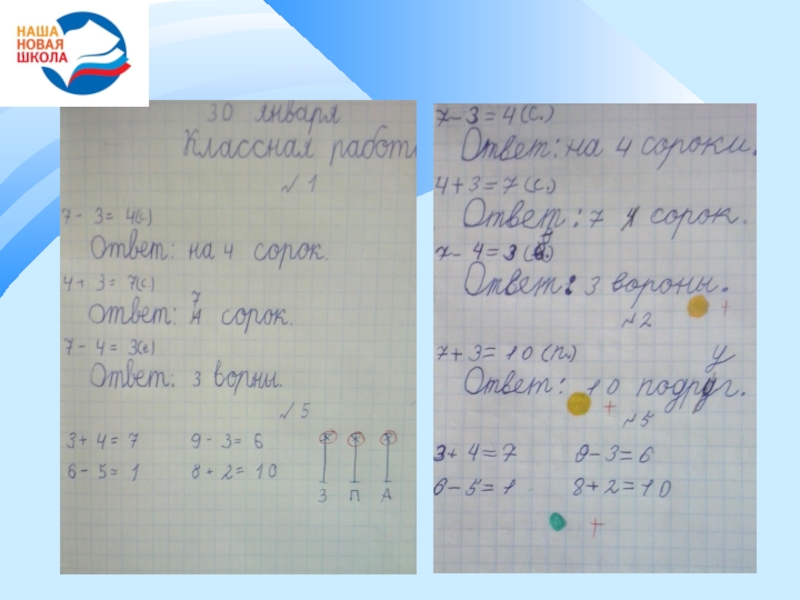 НАША
НОВАЯ
ШКОЛА
30 января
Классная работ
№1
7 - 3 = 4(с.)
Ответ: на 4 сорок.
4 + 3 = 7(с.)
7
Ответ: 4 сорок.
7 - 4 = 3(в.)
Ответ: 3 ворны.
№5
3 + 4 = 7 9 - 3 = 6
6 - 5 = 1 8 + 2 = 10
З П А
7 - 3 = 4 (с.)
Ответ: на 4 сороки.
4 + 3 = 7 (с.)
Ответ: 7 сорок.
7 - 4 = 3 (в.)
Ответ: 3 вороны.
+
№2
7 + 3 = 10 (п.)
у
Ответ: 10 подруг.
+
№5
3 + 4 = 7 9 - 3 = 6
6 - 5 = 1 8 + 2 = 10
+